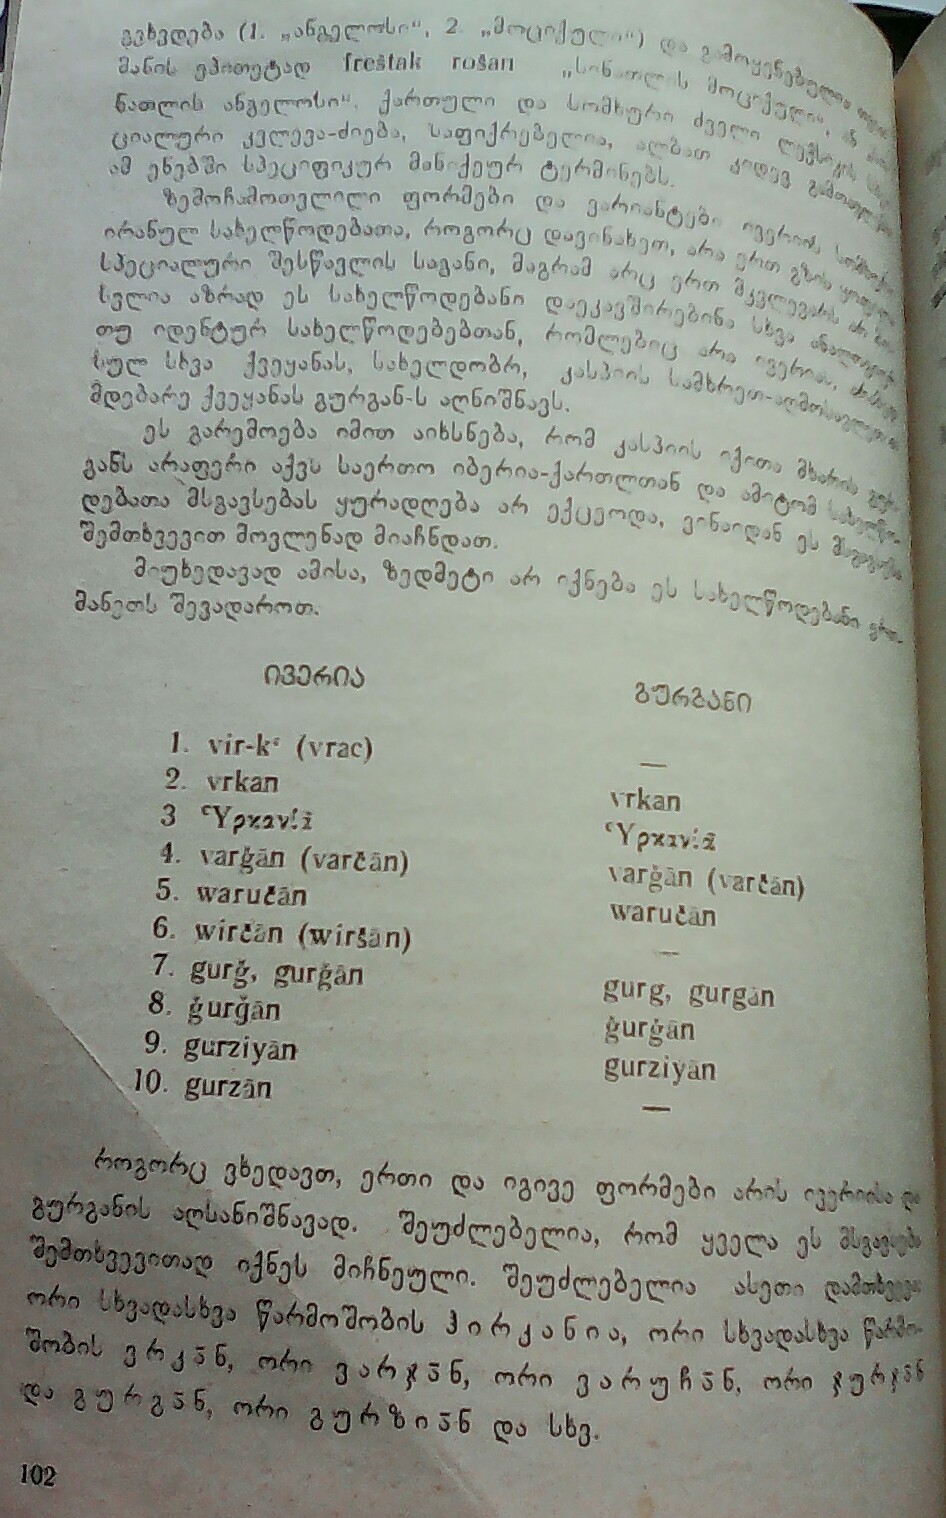 გვხვდება (1. „ანგელოსი“, 2. „მოციქული“) და გამოყენებულია
მანის ეპითეტად frēštak rošan „სინათლის მოციქული“, ან
ნათლის ანგელოსი“. ქართული და სომხური ძველი ლექსიკის
ციალური კვლევა-ძიება, საფიქრებელია, ალბათ კიდევ გამოავლენს
ამ ენებში სპეციფიკურ მანიქეურ ტერმინებს.
ზემოჩამოთვლილი ფორმები და ვარიანტები ივერიის სომხურ-
ირანულ სახელწოდებათა, როგორც დავინახეთ, არა ერთ გზის ყოფილა
სპეციალური შესწავლის საგანი, მაგრამ არც ერთ მკვლევარს არ მო-
სვლია აზრად ეს სახელწოდებანი დაეკავშირებინა სხვა ანალოგიურ
თუ იდენტურ სახელწოდებებთან, რომლებიც არა ივერიას,
სულ სხვა ქვეყანას, სახელდობრ, კასპიის სამხრეთ-აღმოსავლეთით
მდებარე ქვეყანას გურგან-ს აღნიშნავს.
ეს გარემოება იმით აიხსნება, რომ კასპიის იქითა მხარის გურ-
განს არაფერი აქვს საერთო იბერია-ქართლთან და ამიტომ სახელწო-
დებათა მსგავსებას ყურადღება არ ექცეოდა, ვინაიდან ეს მსგავსება
შემთხვევით მოვლენად მიაჩნდათ.
მიუხედავად ამისა, ზედმეტი არ იქნება ეს სახელწოდებანი ერთ-
მანეთს შევადაროთ.
ივერია გურგანი
1. vir-kʿ (vrac) —
2. vrkan vrkan
3 ῾Υρκανία ῾Υρκανία
4. varğān (varčān) varğān (varčān)
5. waručān waručān
6. wirčān (wiršān) —
7. gurğ, gurğān gurg, gurgān
8. ğurğān ğurğān
9. gurziyān gurziyān
10. gurzān —
როგორც ვხედავთ, ერთი და იგივე ფორმები არის ივერიისა და
გურგანის აღსანიშნავად. შეუძლებელია, რომ ყველა ეს მსგავსება
შემთხვევითად იქნეს მიჩნეული. შეუძლებელია ასეთი დამთხვევა:
ორი სხვადასხვა წარმოშობის ჰირკანია, ორი სხვადასხვა წარმო-
შობის ვრკა̄ნ, ორი ვარჯა̄ნ, ორი ვარუჩა̄ნ, ორი ჯურჯა̄ნ
და გურგა̄ნ, ორი გურზია̄ნ და სხვ.
102